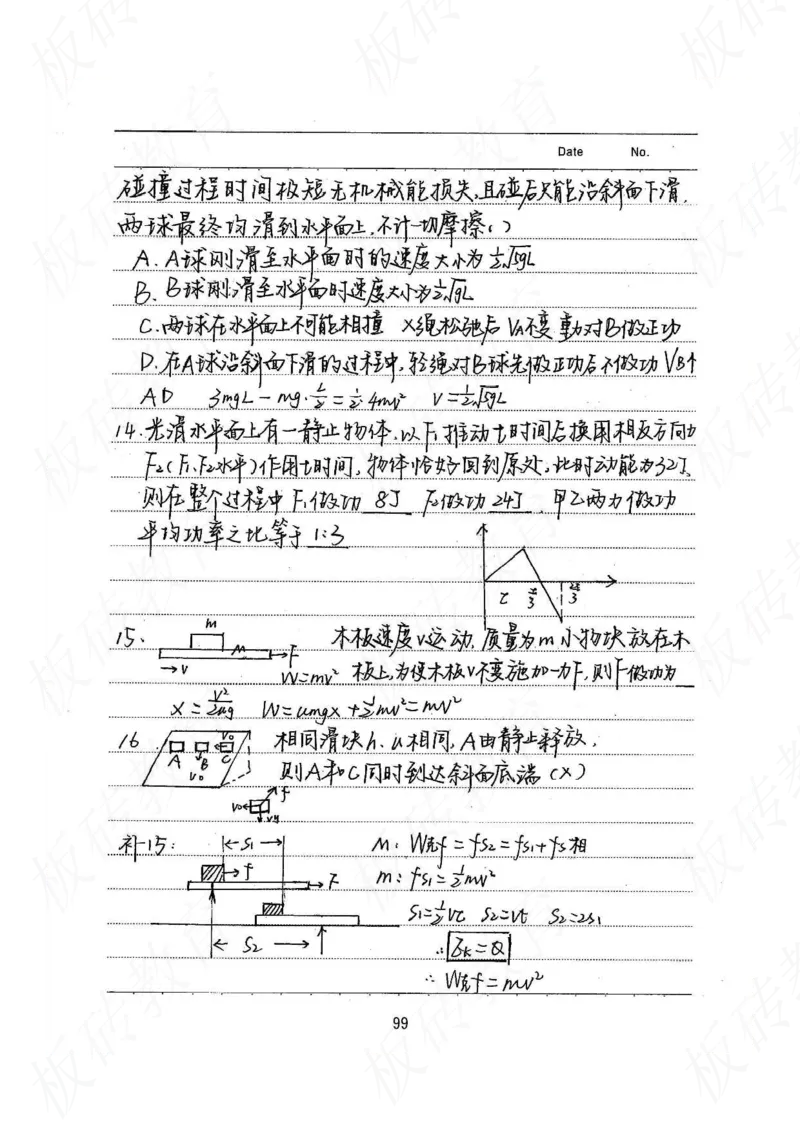 Date No.
碰撞过程时间极短无机械能损失,且碰后只能沿斜面下滑,
两球最终均滑到水平面上,不计一切摩擦( )
A. A球刚滑至水平面时的速度大小为½√5gL
B. B球刚滑至水平面时速度大小为½√gL
C. 两球在水平面上不可能相撞 ×绳松弛后 VA不变 重力对B做正功
D. 在A球沿斜面下滑的过程中,轻绳对B球先做正功后不做功 VB↑
AD 3mgL - mg·L/2 = ½·4mv² V=½√5gL
14. 光滑水平面上有一静止物体,以F₁推动t时间后换用相反方向力
F₂(F₁、F₂水平)作用t时间,物体恰好回到原处,此时动能为32J,
则在整个过程中F₁做功 8J F₂做功 24J . 甲乙两力做功
平均功率之比等于 1:3
15. m M F →v 木板速度v运动,质量为m小物块放在木
W=mv² 板上,为使木板v不变施加一力F,则F做功为
x = v²/2μg W=μmgx+½mv²=mv²
16 A B C v₀ v₀ 相同滑块h、μ相同,A由静止释放,
则A和C同时到达斜面底端 (×)
v₀ f
补15: S₁ M: W克f = fS₂ = fS₁ + fS相
f F m: fS₁ = ½mv²
S₁=½vt S₂=vt S₂=2S₁
S₂ ∴ Ek=Q
∴ W克f = mv²
99
板砖教育